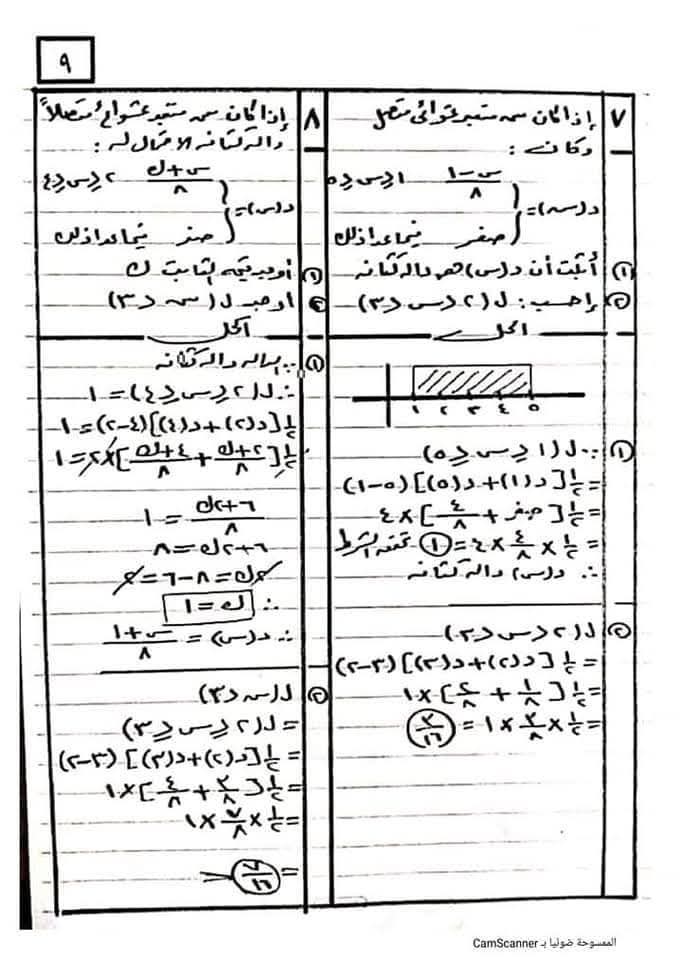 ٩
٧ إذا كان سہ متغير عشوائى متصل
وكان :
د(س) = { (س-١)/٨ ١ ≤ س ≤ ٥
صفر فيما عدا ذلك
(١) أثبت أن د(س) هى دالة كثافة
(٢) إحسب : ل(٢ < س < ٣)
الحل
١ ٢ ٣ ٤ ٥
(١) ∵ ل(١ ≤ س ≤ ٥)
= ١/٢ [د(١) + د(٥)] (٥-١)
= ١/٢ [صفر + ٤/٨] × ٤
= ١/٢ × ٤/٨ × ٤ = (١) تحقق الشرط
∴ د(س) دالة كثافة
(٢) ل(٢ < س < ٣)
= ١/٢ [د(٢) + د(٣)] (٣-٢)
= ١/٢ [١/٨ + ٢/٨] × ١
= ١/٢ × ٣/٨ × ١ = ٣/١٦
٨ إذا كان سہ متغير عشوائى متصلاً
دالة كثافة الاحتمال له :
د(س) = { (س+ك)/٨ ٢ ≤ س ≤ ٤
صفر فيما عدا ذلك
(١) أوجد قيمة الثابت ك
(٢) أوجد ل(سہ < ٣)
الحل
(١) ∵ الدالة دالة كثافة
∴ ل(٢ ≤ س ≤ ٤) = ١
١/٢ [د(٢) + د(٤)] (٤-٢) = ١
١/٢ [(٢+ك)/٨ + (٤+ك)/٨] × ٢ = ١
(٦+٢ك)/٨ = ١
٦+٢ك = ٨
٢ك = ٨-٦ = ٢
∴ ك = ١
∴ د(س) = (س+١)/٨
(٢) ل(س < ٣)
= ل(٢ ≤ س ≤ ٣)
= ١/٢ [د(٢) + د(٣)] (٣-٢)
= ١/٢ [٣/٨ + ٤/٨] × ١
= ١/٢ × ٧/٨ × ١
= ٧/١٦
الممسوحة ضوئيا بـ CamScanner